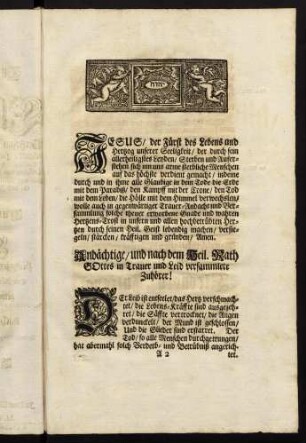 JESUS/ der Fürst des Lebens und
Hertzog unserer Seeligkeit/ der durch sein
allerheiligstes Leyden/ Sterben und Aufer-
stehen sich um uns arme sterbliche Menschen
auf das höchste verdient gemacht/ indeme
durch und in ihme alle Glaubige in dem Tode die Erde
mit dem Paradeß/ den Kampff mit der Crone/ den Tod
mit dem Leben/ die Hölle mit dem Himmel verwechslen/
wolle auch in gegenwärtiger Trauer-Andacht und Ver-
sammlung solche theuer erworbene Gnade und wahren
Hertzens-Trost in unsern und allen hochbetrübten Her-
tzen durch seinen Heil. Geist lebendig machen/ versie-
geln/ stärcken/ kräfftigen und gründen/ Amen.
Andächtige/ und nach dem Heil. Rath
GOttes in Trauer und Leid versammlete
Zuhörer!
DEr Leib ist entseelet/ das Hertz verschmach-
tet/ die Lebens-Kräffte sind ausgezeh-
ret/ die Säffte vertrocknet/ die Augen
verdunckelt/ der Mund ist geschlossen/
Und die Glieder sind erstarret. Der
Tod/ so alle Menschen durchgetrungen/
hat abermahl solch Verderb- und Betrübniß angerich-
A 2 tet.